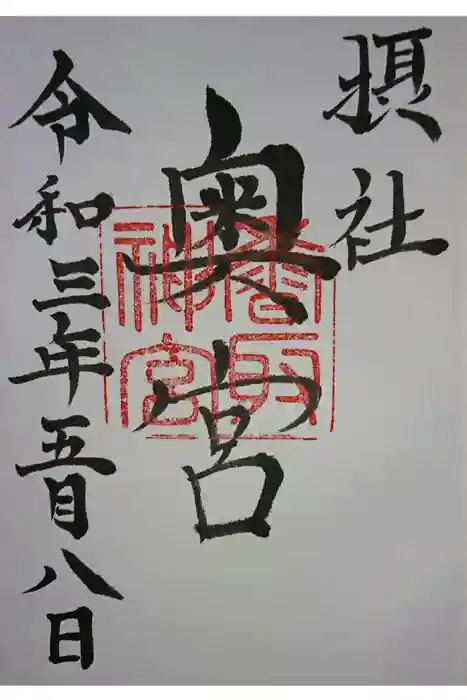 摂社
奥宮
香取
神宮
令和三年五月八日